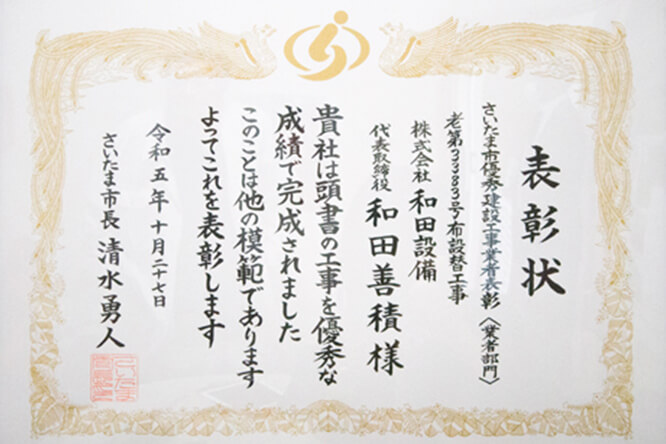 表彰状
さいたま市優秀建設工事業者表彰〈業者部門〉
老第3383号布設替工事
株式会社 和田設備
代表取締役 和田善積様
貴社は頭書の工事を優秀な
成績で完成されました
このことは他の模範であります
よってこれを表彰します
令和五年十月二十七日
さいたま市長 清水勇人